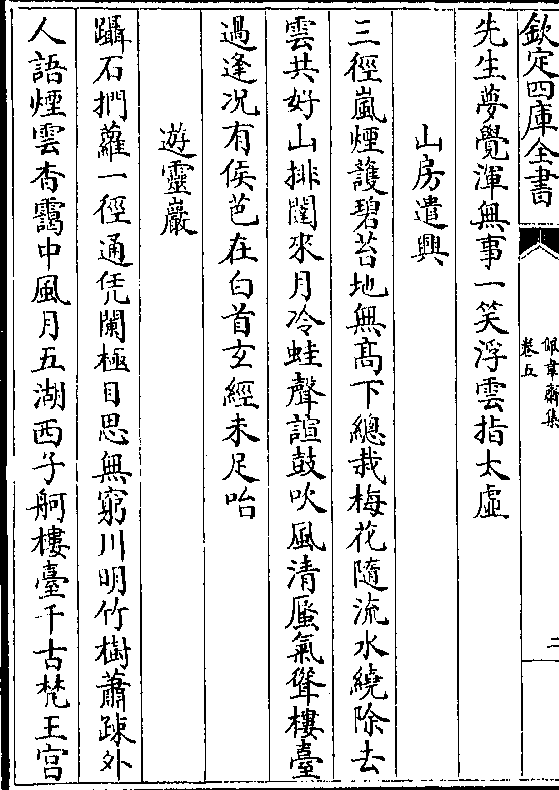 欽定四庫全書
佩韋齋集
卷五
二
先生夢覺渾無事一笑浮雲指太虛
山房遣興
三徑嵐煙護碧苔地無髙下總栽梅花隨流水繞除去
雲共好山排闥來月冷蛙聲諠鼓吹風清蜃氣聳樓臺
過逢况有侯芭在白首玄經未足咍
遊靈巖
躡石捫蘿一徑通凭闌極目思無窮川明竹樹蕭踈外
人語煙雲杳靄中風月五湖西子舸樓臺千古梵王宫